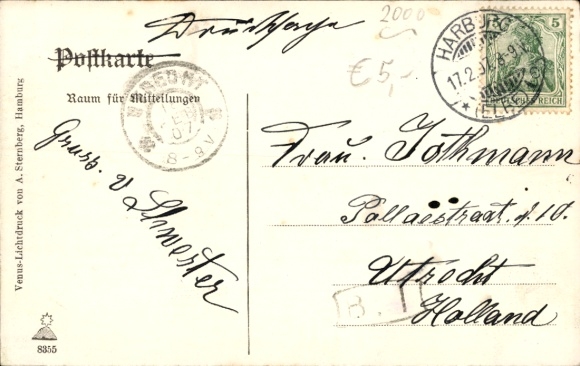 Drucksache
2000
€5,-
Postkarte
Raum für Mitteilungen
Gruss. v Schwester
Frau. Jothmann
Pallaestraat. 10.
Utrecht
Holland
B.
HARBURG
17.2.07. 8-9V
(ELBE)
5
DEUTSCHES REICH
UTRECHT
07
8-9V
Venus-Lichtdruck von A. Sternberg, Hamburg
8355